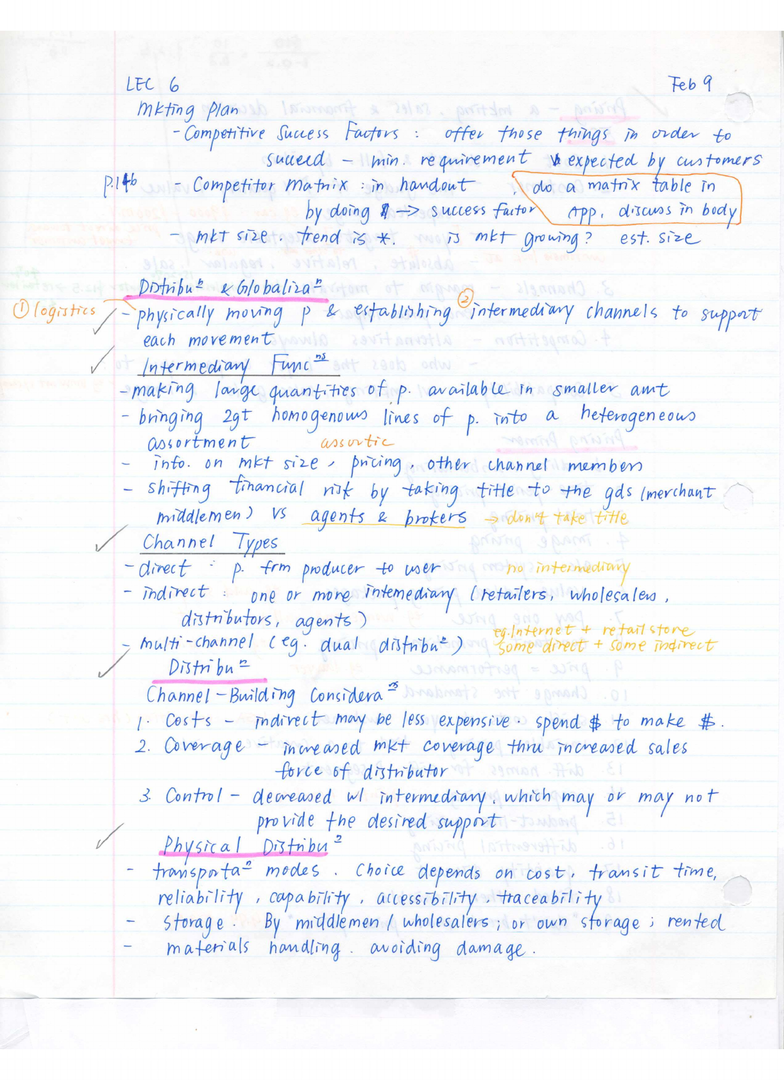 LEC 6 Feb 9
Mkting Plan
- Competitive Success Factors : offer those things in order to
succeed - min. requirement expected by customers
p.146 - Competitor Matrix : in handout . do a matrix table in
by doing → success factor App, discuss in body
- mkt size : trend is *. is mkt growing? est. size
Distribuⁿ & Globalizaⁿ
① logistics
- physically moving p & establishing ② intermediary channels to support
each movement
Intermediary Funcⁿˢ
- making large quantities of p. available in smaller amt
- bringing 2gt homogenous lines of p. into a heterogeneous
assortment assortic
- info. on mkt size, pricing, other channel members
- shifting financial risk by taking title to the gds (merchant
middlemen) vs agents & brokers → don't take title
Channel Types
- direct : p. frm producer to user no intermediary
- indirect : one or more intemediary (retailers, wholesalers,
distributors, agents)
- multi-channel (eg. dual distribuⁿ) eg. Internet + retail store
some direct + some indirect
Distribuⁿ
Channel-Building Consideraⁿˢ
1. Costs - indirect may be less expensive. spend $ to make $.
2. Coverage - increased mkt coverage thru increased sales
force of distributor
3. Control - decreased w/ intermediary, which may or may not
provide the desired support
Physical Distribuⁿ
- transportaⁿ modes. Choice depends on cost, transit time,
reliability, capability, accessibility, traceability
- Storage. By middlemen / wholesalers; or own storage; rented
- materials handling. avoiding damage.